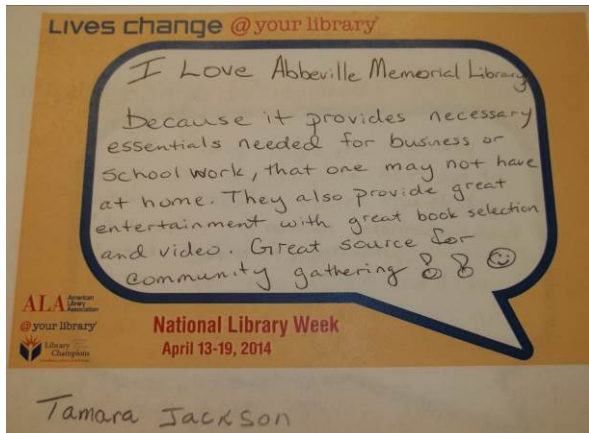 Lives change @ your library®
I Love Abbeville Memorial Library
because it provides necessary
essentials needed for business or
school work, that one may not have
at home. They also provide great
entertainment with great book selection
and video. Great source for
community gathering
ALA American
Library
Association
@ your library®
Library
Champions
National Library Week
April 13-19, 2014
Tamara Jackson